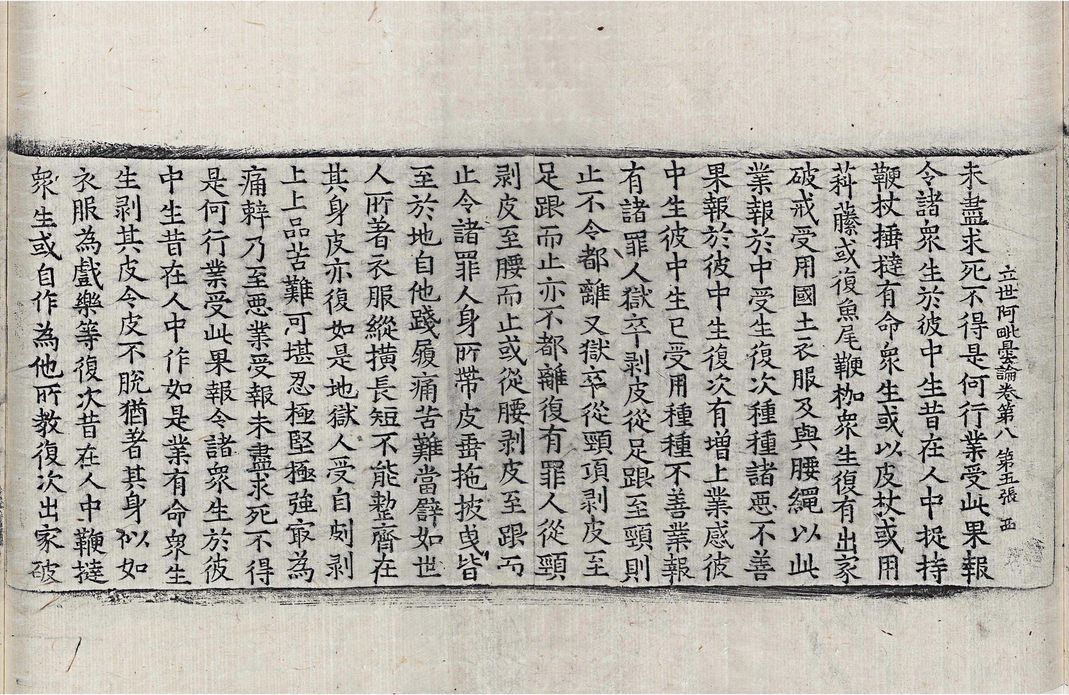 立世阿毗曇論卷第八 第五張 西
未盡求死不得是何行業受此果報
令諸衆生於彼中生昔在人中捉持
鞭杖捶撻有命衆生或以皮杖或用
蕀藤或復魚尾鞭枷衆生復有出家
破戒受用國土衣服及與腰繩以此
業報於中受生復次種種諸惡不善
果報於彼中生復次有增上業感彼
中生彼中生已受用種種不善業報
有諸罪人獄卒剥皮從足踉至頸則
止不令都離又獄卒從頸項剥皮至
足踉而止亦不都離復有罪人從頸
剥皮至腰而止或從腰剥皮至踉而
止令諸罪人身所帶皮垂拖披曵皆
至於地自他踐履痛苦難當譬如世
人所著衣服縱橫長短不能整齊在
其身皮亦復如是地獄人受自剜剥
上上品苦難可堪忍極堅極強冣為
痛辢乃至惡業受報未盡求死不得
是何行業受此果報令諸衆生於彼
中生昔在人中作如是業有命衆生
生剥其皮令皮不脫猶著其身似如
衣服為戲樂等復次昔在人中鞭撻
衆生或自作為他所教復次出家破